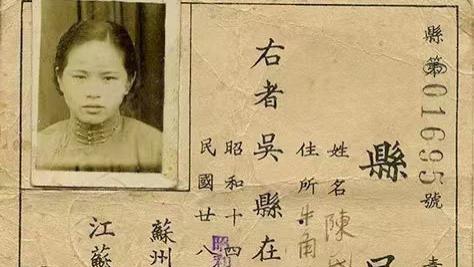 縣第01695號
縣
姓名 陳氏
住所 牛角
右者吳縣在
昭和十四
昭和
民國廿八
蘇州
江蘇